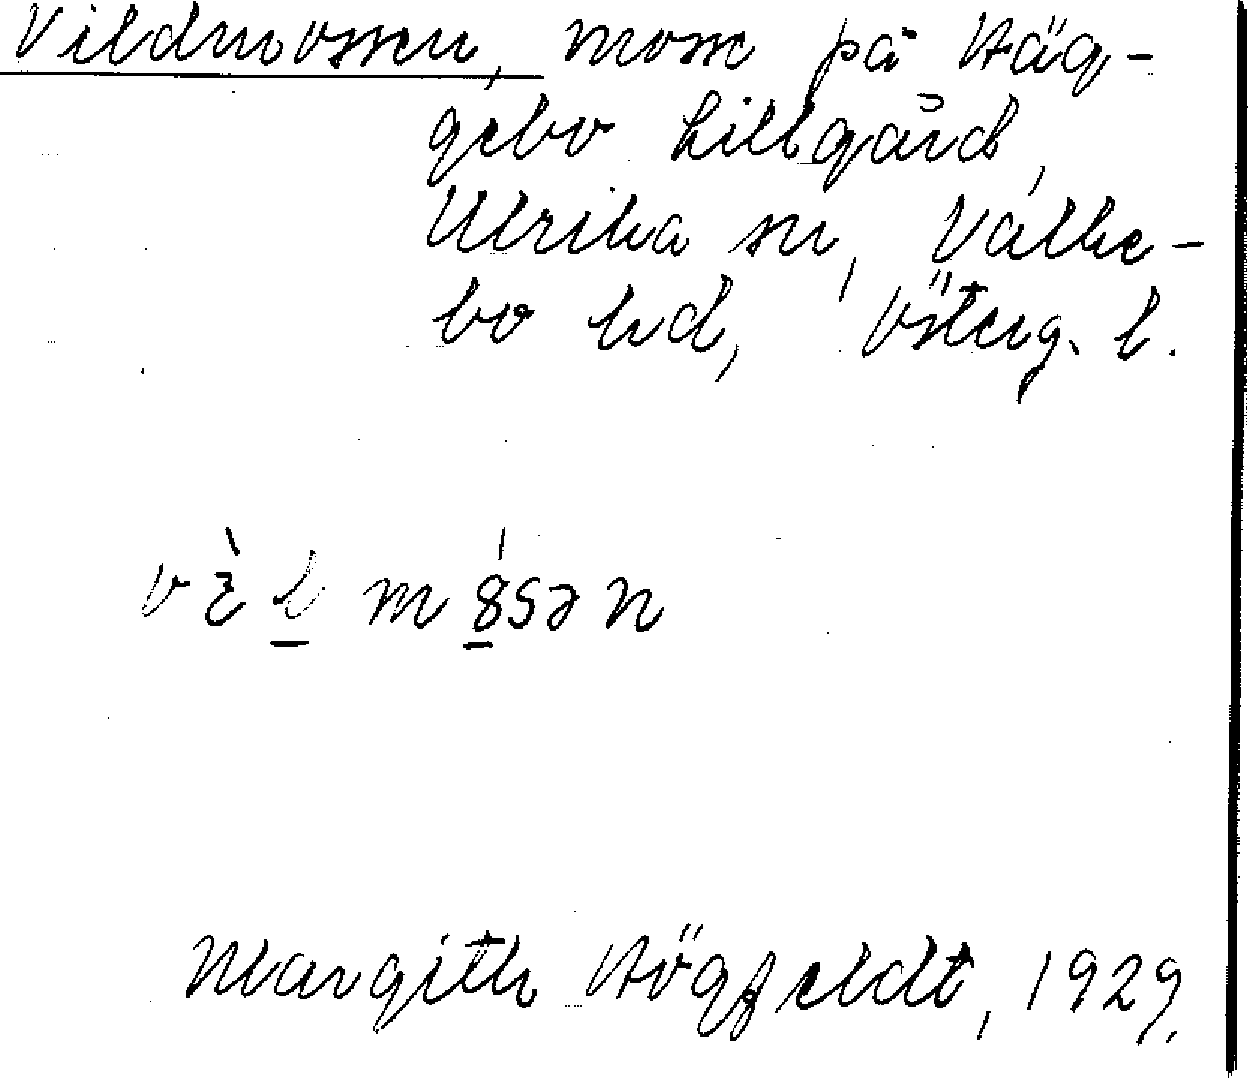 Vildmossen, mosse på Häg-
gebo Lillgård,
Ulrika sn, Valke-
bo hd, Österg. l.
Margith Högfeldt, 1929.